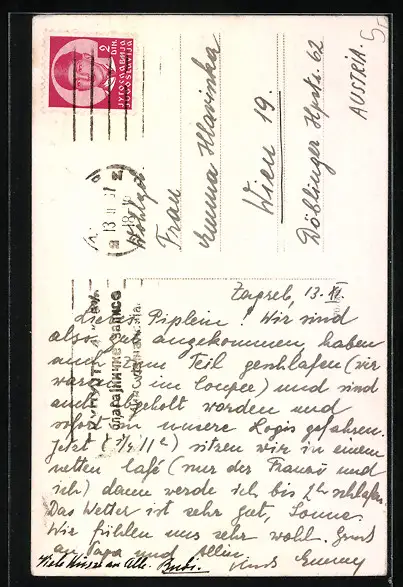 5-
2
DIN.
ЈУГОСЛАВИЈА
JUGOSLAVIJA
13 II 37
Wohlgeb.
Frau
Emma Hlavinka
Wien 19.
Döblinger Hpstr. 62
AUSTRIA.
Zagreb, 13. II.
Liebes Piplein! Wir sind
also gut angekommen, haben
auch zum Teil geschlafen (wir
waren im Coupee) und sind
auch abgeholt worden und
sofort in unsere Logis gefahren.
Jetzt (3/4 11h) sitzen wir in einem
netten Café (nur der Franzi und
ich) dann werde ich bis 2h schlafen.
Das Wetter ist sehr gut, Sonne.
Wir fühlen uns sehr wohl. Gruß
an Papa und Allen.
Viele Küsse an Alle. Bubi.
und Emmy